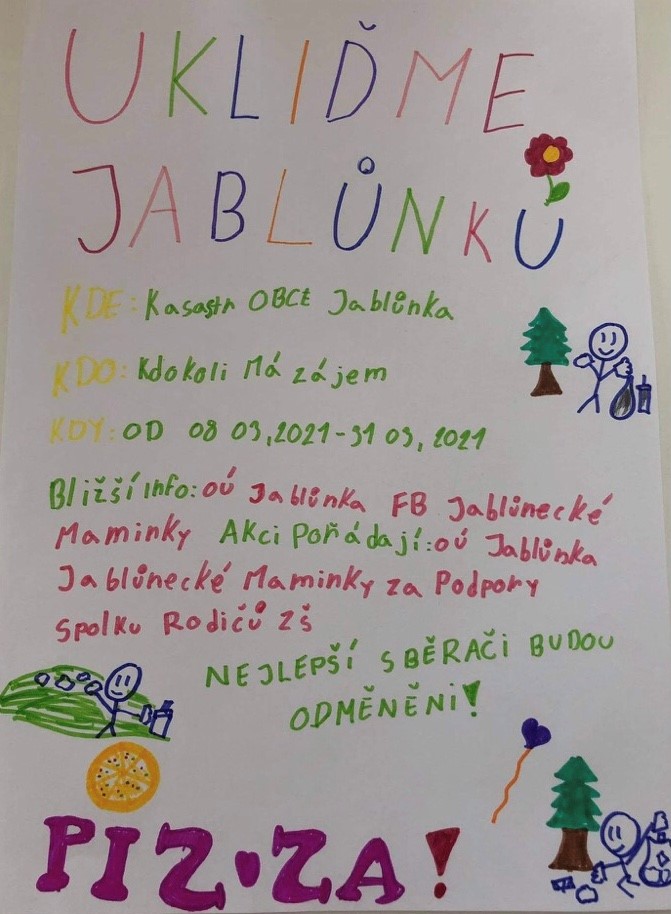 UKLIĎME
JABLŮNKU
KDE: Kasastr OBCE Jablůnka
KDO: Kdokoli Má zájem
KDY: OD 08 03,2021-31 03, 2021
Bližší info: OÚ Jablůnka FB Jablůnecké
Maminky Akci Pořádají: OÚ Jablůnka
Jablůnecké Maminky za Podpory
spolku Rodičů ZŠ
NEJLEPŠÍ SBĚRAČI BUDOU
ODMĚNĚNI!
PIZZA!